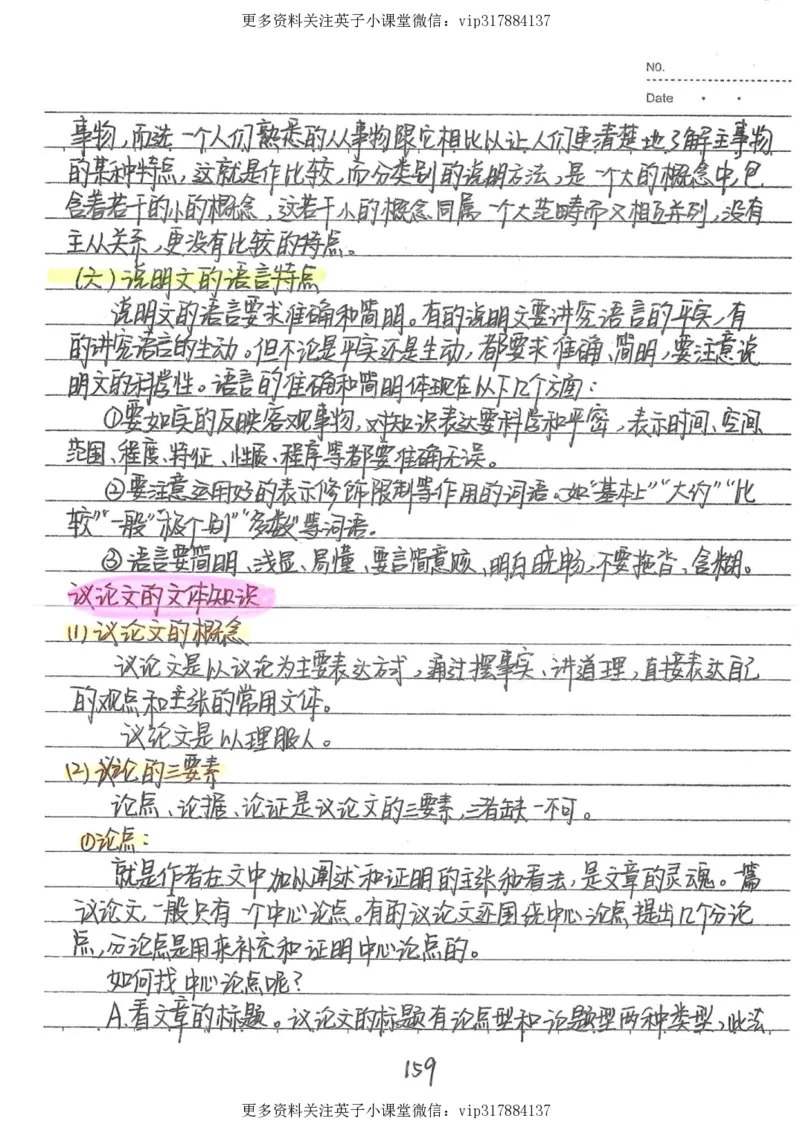 更多资料关注英子小课堂微信：vip317884137
NO.
Date
事物，而选一个人们熟悉的从事物跟它相比以让人们更清楚地了解主事物
的某种特点，这就是作比较，而分类别的说明方法，是一个大的概念中，包
含着若干的小的概念，这若干小的概念同属一个大范畴而又相互并列，没有
主从关系，更没有比较的特点。
(六)说明文的语言特点
说明文的语言要求准确和简明。有的说明文要讲究语言的平实，有
的讲究语言的生动。但不论是平实还是生动，都要求准确、简明，要注意说
明文的科学性。语言的准确和简明体现在以下几个方面：
①要如实的反映客观事物，对知识表达要科学和严密，表示时间、空间、
范围、程度、特征、性质、程序等都要准确无误。
②要注意运用好的表示修饰限制等作用的词语。如"基本上""大约""比
较""一般""极个别""多数"等词语。
③语言要简明、浅显、易懂、要言简意赅、明白晓畅，不要拖沓、含糊。
议论文的文体知识
(1)议论文的概念
议论文是以议论为主要表达方式，通过摆事实、讲道理，直接表达自己
的观点和主张的常用文体。
议论文是以理服人。
(2)议论的三要素
论点、论据、论证是议论文的三要素，三者缺一不可。
①论点：
就是作者在文中加以阐述和证明的主张和看法，是文章的灵魂。一篇
议论文，一般只有一个中心论点。有的议论文还围绕中心论点提出几个分论
点，分论点是用来补充和证明中心论点的。
如何找中心论点呢？
A.看文章的标题。议论文的标题有论点型和论题型两种类型，此法
159
更多资料关注英子小课堂微信：vip317884137